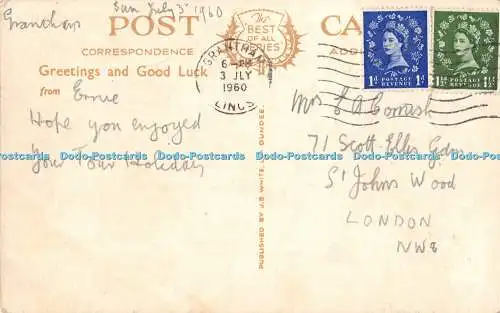 Grantham
Sun July 3rd 1960
POST CA
THE BEST OF ALL SERIES
CORRESPONDENCE ADD
Greetings and Good Luck
from Ernie
Hope you enjoyed
Your Tour Holiday
GRANTHAM
6-PM
3 JLY
1960
LINCS
1D 1D
POSTAGE REVENUE
1½ 1½
POSTAGE REVENUE
Mrs E A Cornish
71 Scott Ellis Gdns
St Johns Wood
LONDON
NW8
Dodo-Postcards Dodo-Postcards Dodo-Postcards Dodo-Postcards Dodo-Postcards
PUBLISHED BY VALENTINE DUNDEE